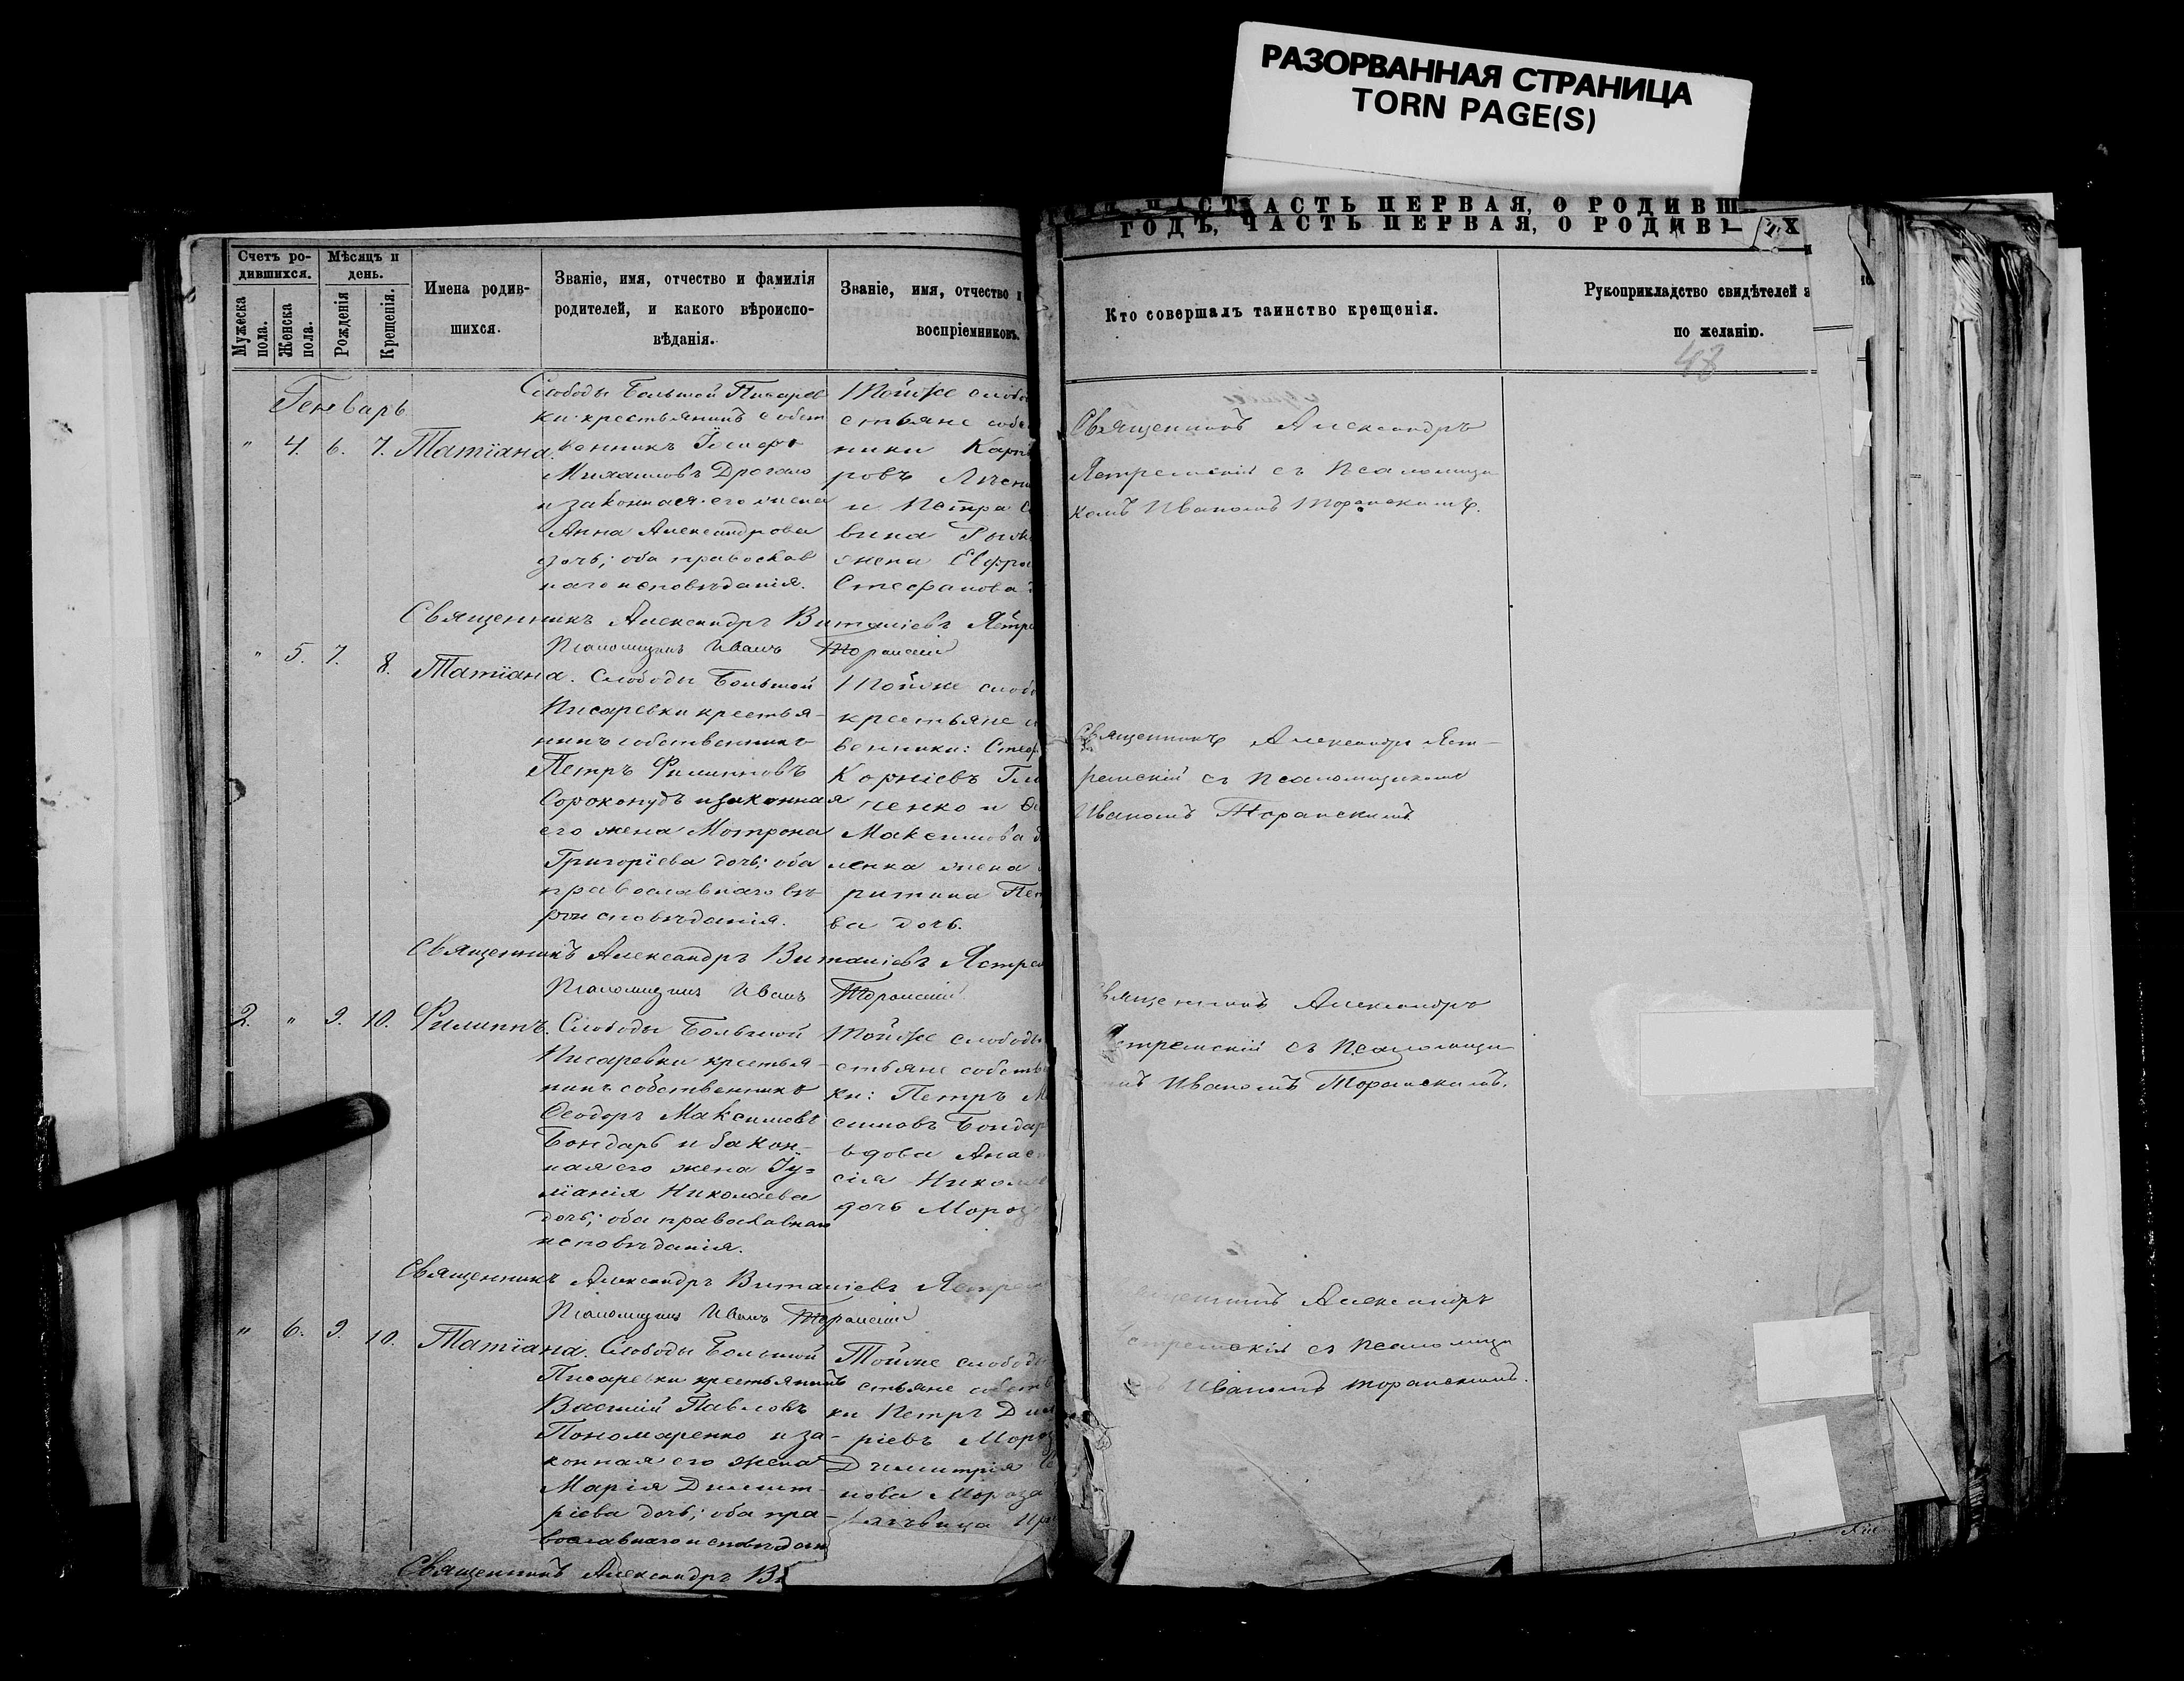 РАЗОРВАННАЯ СТРАНИЦА
TORN PAGE(S)
ЧАСТЬ ПЕРВАЯ, О РОДИВШ
ГОДЪ, ЧАСТЬ ПЕРВАЯ, О РОДИВ
Х
Счетъ ро-
дившихся.
Мѣсяцъ и
день.
Мужеска
пола.
Женска
пола.
Рожденія
Крещенія.
Имена родив-
шихся.
Званіе, имя, отчество и фамилія
родителей, и какого вѣроиспо-
вѣданія.
Званіе, имя, отчество
воспріемниковъ.
Кто совершалъ таинство крещенія.
Рукоприкладство свидѣтелей
по желанію.
48
Генварь
" 4. 6. 7. Татіана.
Слободы Большой Писарев
ки крестьянинъ собст
венникъ Іосифъ
Михаиловъ
и законная его жена
Анна Александрова
дочь; оба православ
наго исповѣданія.
Тойже слобо
стьяне собс
ники
ровъ
и Петра
вина
жена Евфро
Стефанова
Священникъ Александръ
Ястремскій съ Псаломщи
комъ Иваномъ Торанскимъ.
Священникъ Александръ Виталіевъ Ястре
Псаломщикъ Иванъ Торанскій
" 5. 7. 8. Татіана.
Слободы Большой
Писаревки крестья-
нинъ собственникъ
Петръ Филипповъ
Сорокопудъ и законная
его жена Мотрона
Григоріева дочь; оба
православнаго вѣ-
роисповѣданія.
Тойже слобо
крестьяне
венники: Стеф
Корніевъ
ненко и
Максимова
ленка жена
ритина Пет
ва дочь.
Священникъ Александръ Яст-
ремскій съ Псаломщикомъ
Иваномъ Торанскимъ
Священникъ Александръ Виталіевъ Ястре
Псаломщикъ Иванъ Торанскій
2. " 9. 10. Филиппъ.
Слободы Большой
Писаревки крестья-
нинъ собственникъ
Ѳеодоръ Максимовъ
Бондарь и закон-
ная его жена Іу=
ліанія Николаева
дочь; оба православнаго
исповѣданія.
Тойже слободы
стьяне собств
ки: Петръ М
симовъ Бондар
вдова Анас
сія Никола
дочь Мороз
вященникъ Александръ
стремскій съ Псаломщи
мъ Иваномъ Торанскимъ.
Священникъ Александръ Виталіевъ Ястрем
Псаломщикъ Иванъ Торанскій
" 6. 9. 10. Татіана.
Слободы Большой
Писаревки крестьянинъ
Василій Павловъ
Пономаренко и за-
конная его жена
Марія Димит-
ріева дочь; оба пра-
вославнаго исповѣдан
Тойже слободы
стьяне собств
ки Петръ Дим
ріевъ Мороз
Димитрія
нова Мороза
дѣвица
щенникъ Александръ
стремскій съ Псаломщи
Иваномъ Торанскимъ.
Священникъ Александръ Ви